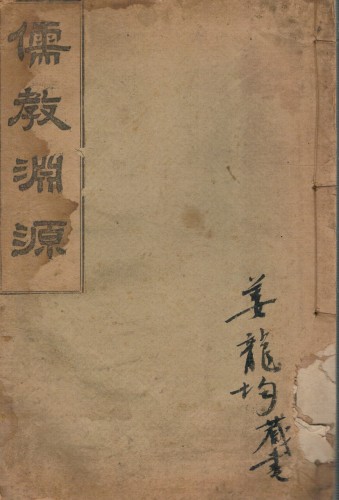 儒教淵源
姜龍均藏書